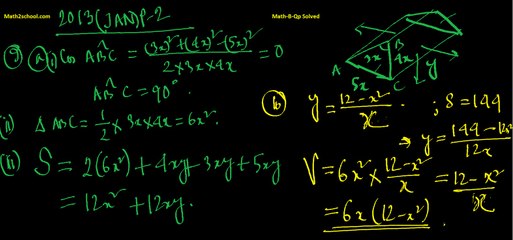 Math2school.com
Math-B-Qp Solved
2013 (JAN) P-2
9) a (i) Cos AB̂C = ((3x)² + (4x)² - (5x)²) / (2 × 3x × 4x) = 0
AB̂C = 90°.
(ii) Δ ABC = 1/2 × 3x × 4x = 6x².
(iii) S = 2(6x²) + 4xy + 3xy + 5xy
= 12x² + 12xy.
A
B
C
3x
4x
5x
y
(b) y = (12 - x²) / x ; S = 144
→ y = (144 - 12x²) / 12x
= (12 - x²) / x
V = 6x² × (12 - x²) / x
= 6x (12 - x²)